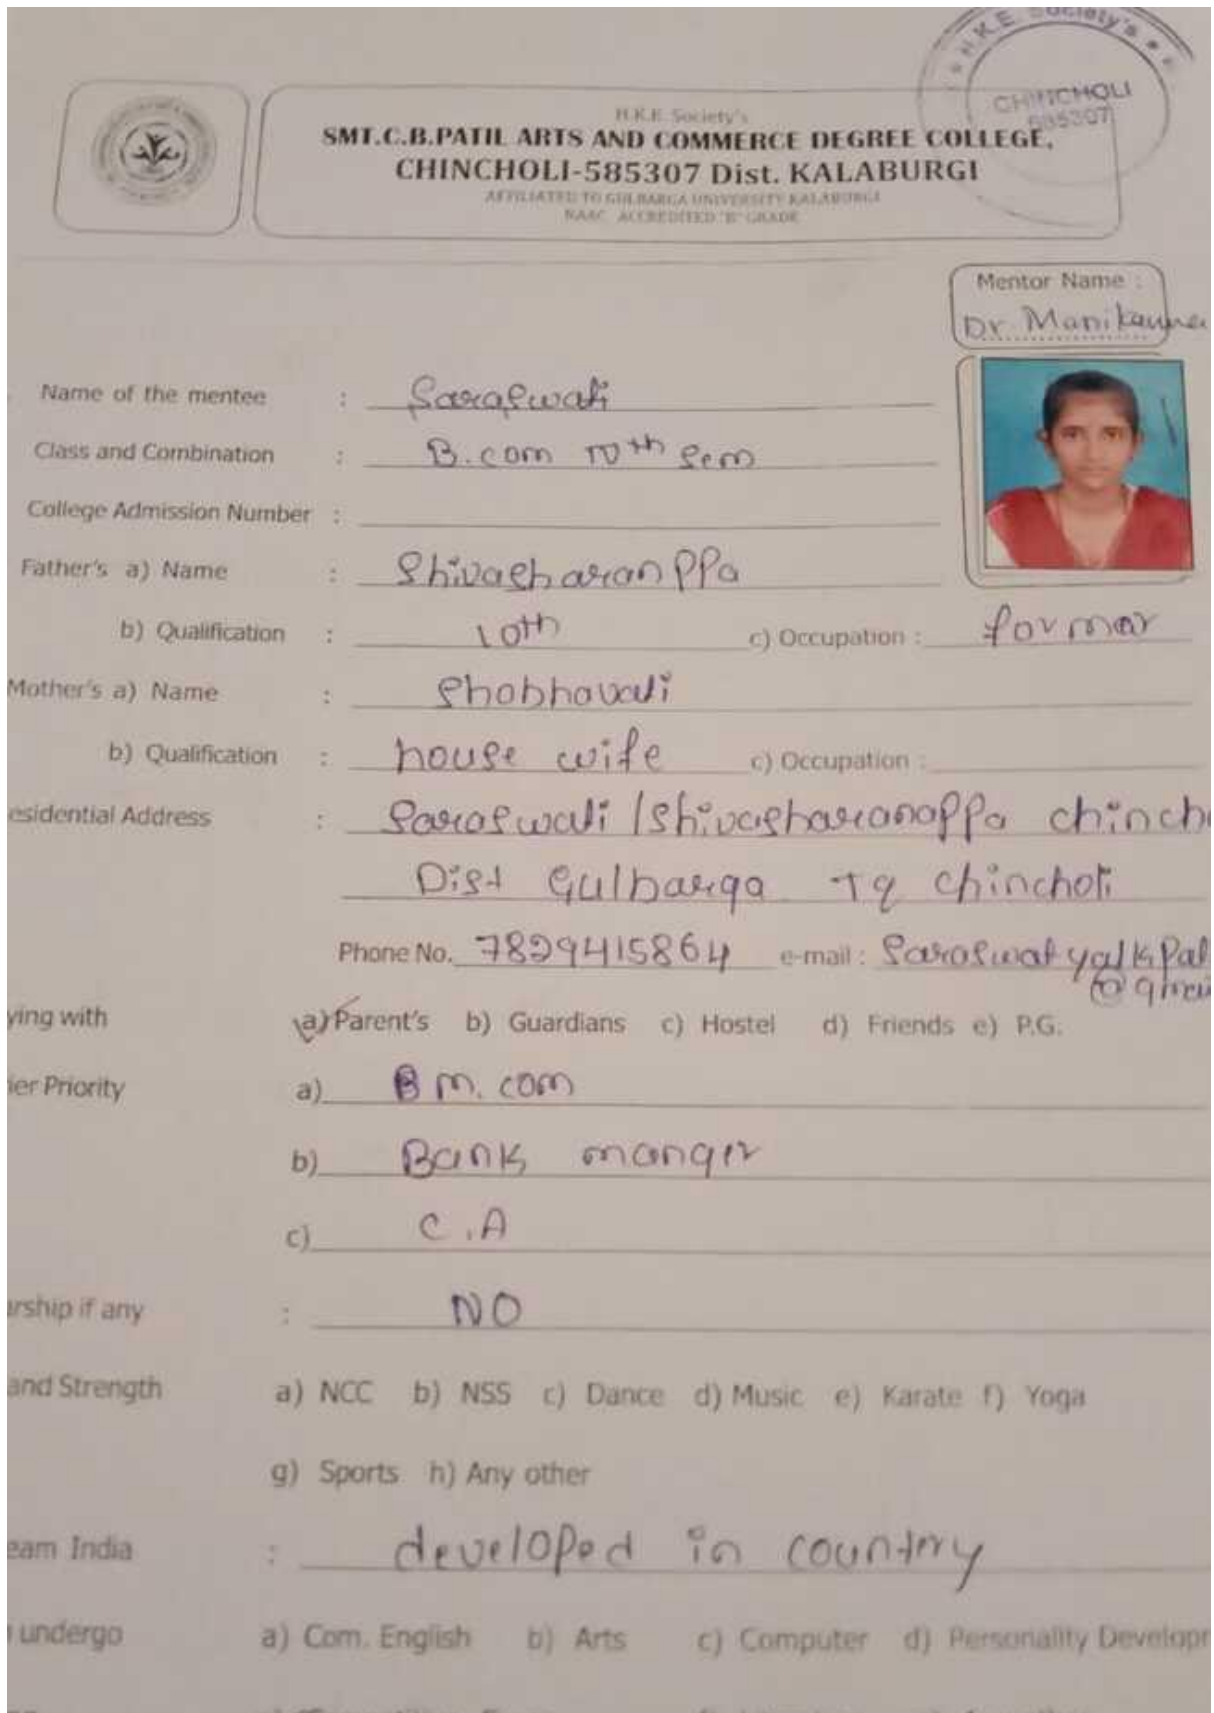 H.K.E. Society's
CHINCHOLI
585307
H.K.E. Society's
SMT.C.B.PATIL ARTS AND COMMERCE DEGREE COLLEGE,
CHINCHOLI-585307 Dist. KALABURGI
AFFILIATED TO GULBARGA UNIVERSITY KALABURGI
NAAC ACCREDITED "B" GRADE
Mentor Name :
Dr. Manikamma
Name of the mentee : Saraswati
Class and Combination : B.com IVth Sem
College Admission Number :
Father's a) Name : Shivasharanppa
b) Qualification : 10th c) Occupation : formar
Mother's a) Name : Shobhavati
b) Qualification : house wife c) Occupation :
esidential Address : Saraswati / Shivasharanappa chinch
Dist Gulbarga Tq chincholi
Phone No. 7829415864 e-mail :
ying with a) Parent's b) Guardians c) Hostel d) Friends e) P.G.
ier Priority a) M. com
b) Bank manger
c) C.A
arship if any : NO
and Strength a) NCC b) NSS c) Dance d) Music e) Karate f) Yoga
g) Sports h) Any other
eam India : developed in country
undergo a) Com. English b) Arts c) Computer d) Personality Developm